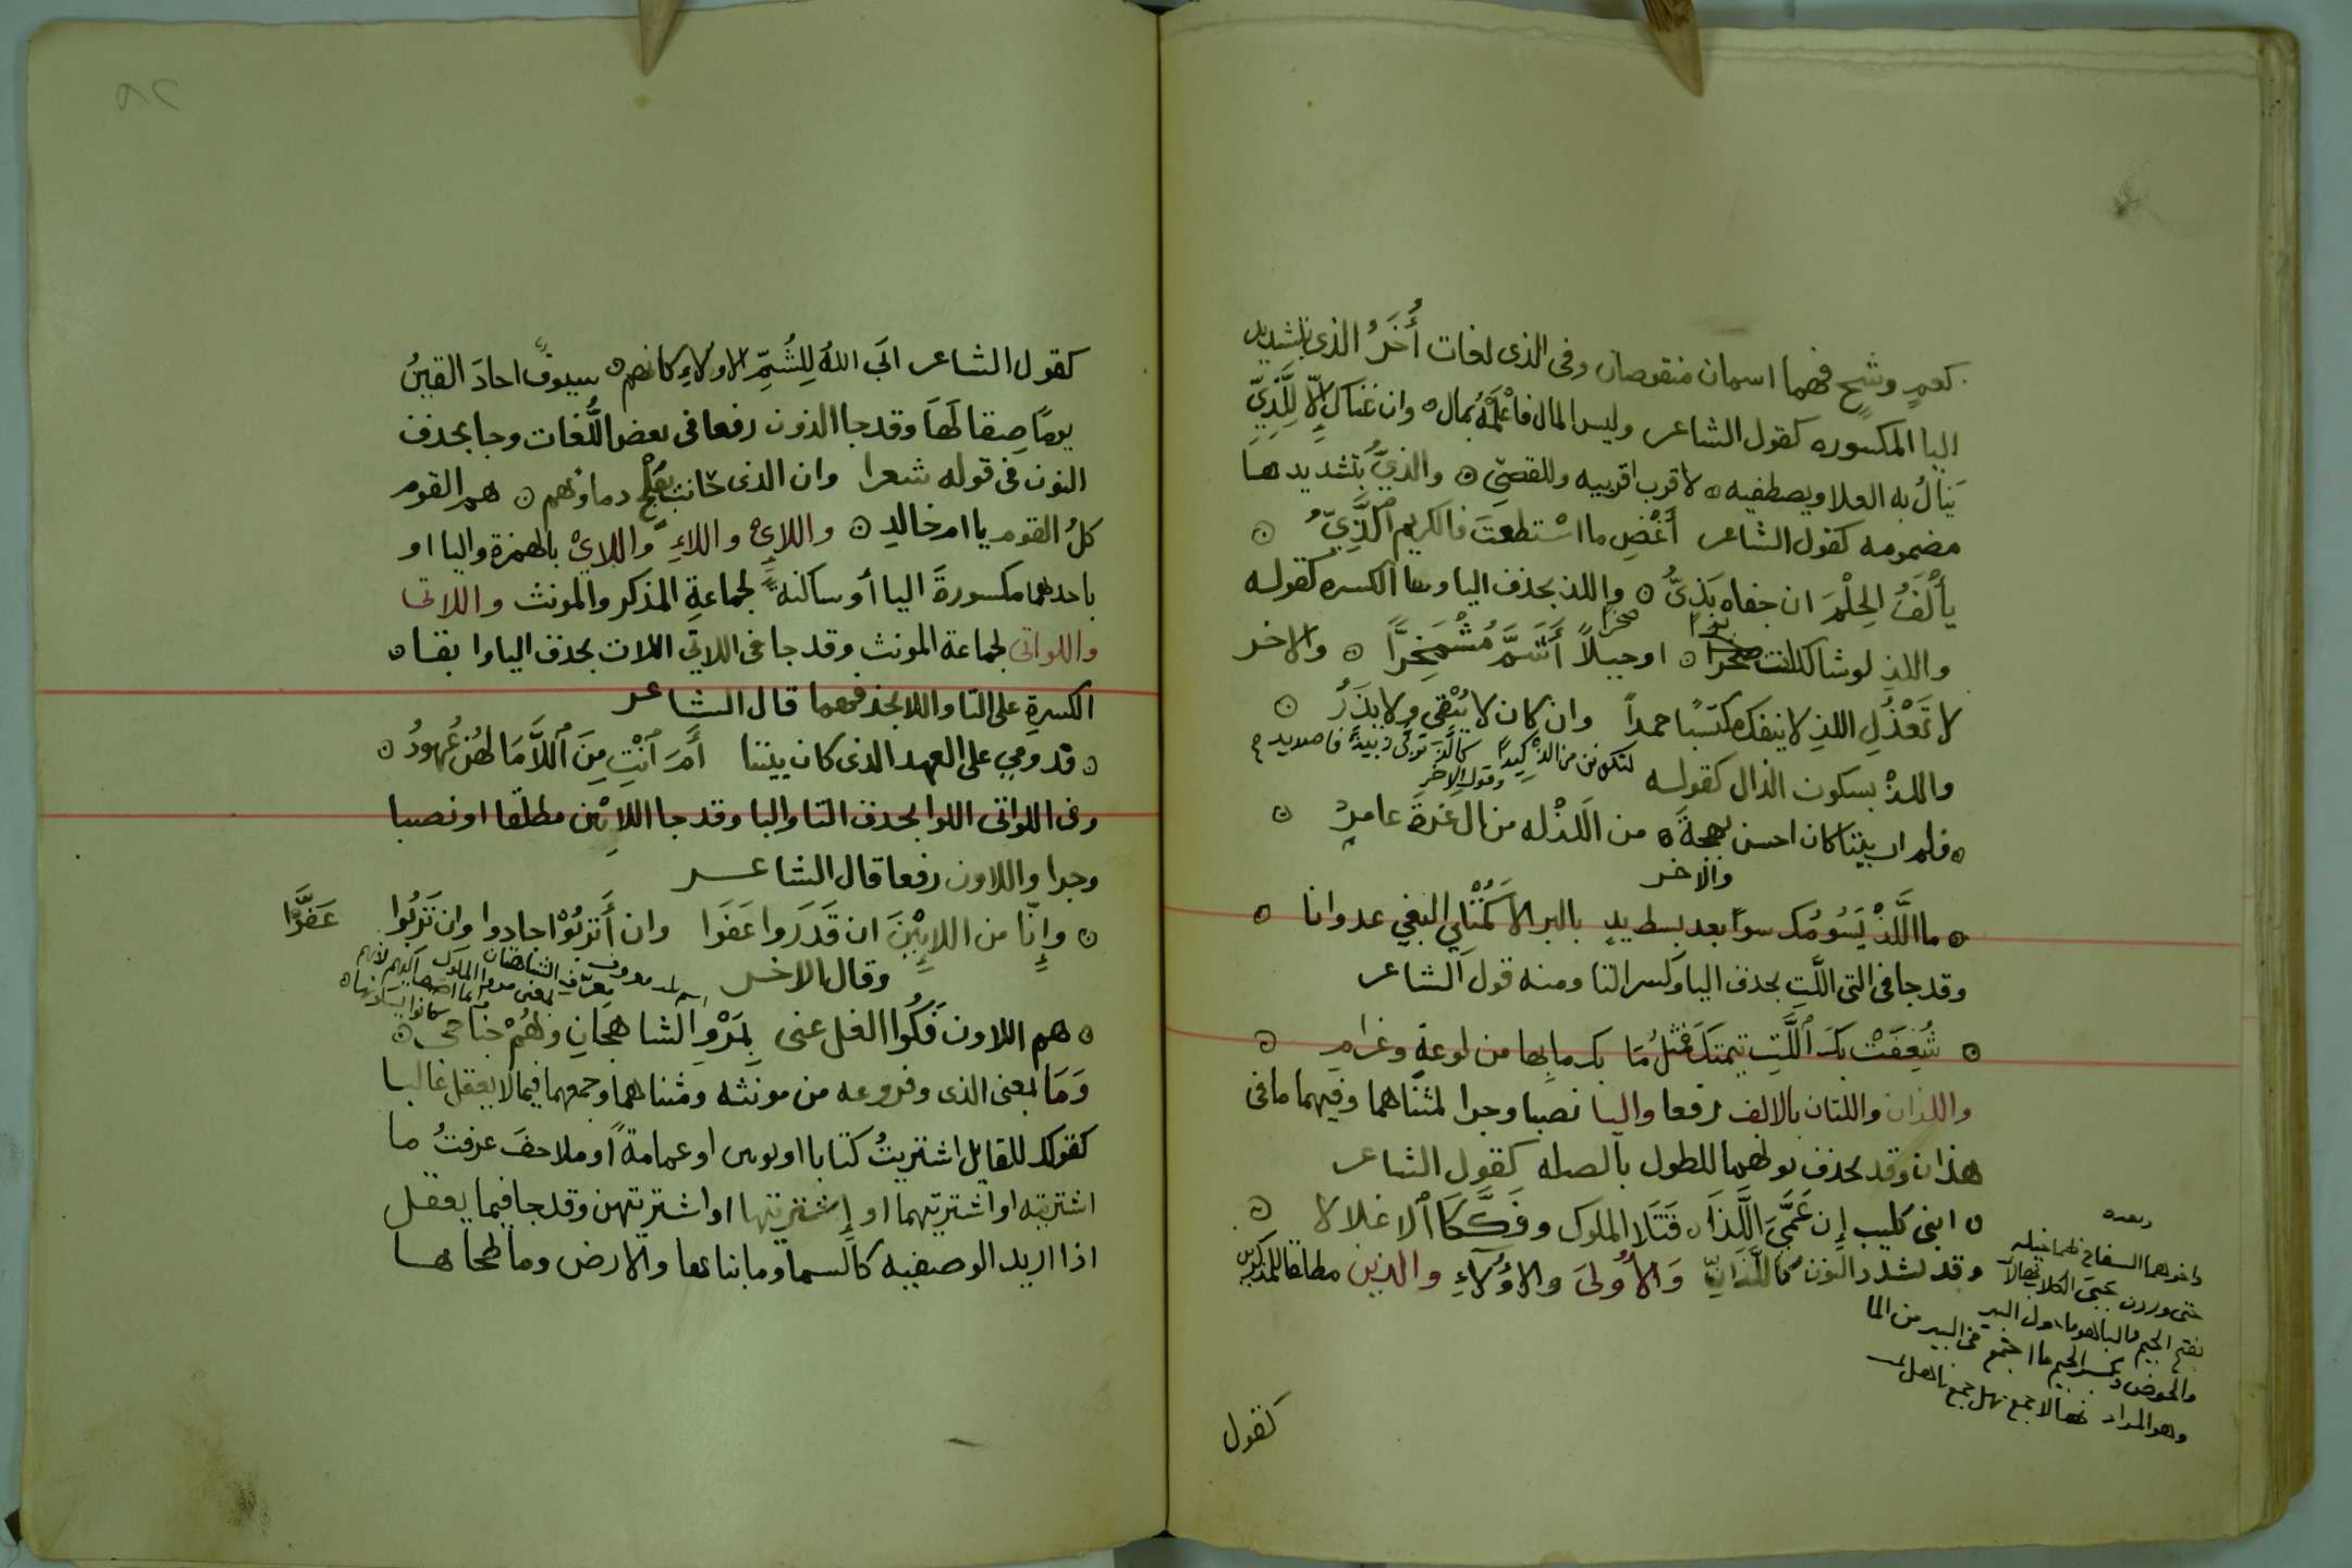 كعمٍ وشجٍ فهما اسمان منقوصان وفى الذى لغات أُخَرُ الذى بتشديد
اليا المكسوره كقول الشاعر وليس المال فاعْلَمْهُ بمال ٥ وان غناك إلّا لِلَّذِيّ
يَنالُ به العلا ويصطفيه ٥ لاقرب اقربيه وللقصيّ ٥ والذيُّ بتشديدها
مضمومه كقول الشاعر أَغْضِ ما اسْتطعتَ فالكريم ٱلَّذِيُّ ٥
يأْلَفُ الحِلْمَ ان جفاه بَذِىُّ ٥ واللذِ بحذف اليا وبقا الكسره كقوله
واللذِ لوشا لكانت صخرا ٥ او جبلاً أَشَمَّ مُشْمَخِرًّا ٥ والاخر
لا تَعْذُلِ اللذِ لا ينفك مكتسبًا حمداً وان كان لا يُبْقِى ولا يَذَرُ ٥
واللذْ بسكون الذال كقوله
وقول الاخر
٥ فلم ار بيتا كان احسن بهجةً ٥ من اللَذْ له من ال عَزةَ عامرِ ٥
والاخر
٥ ما اللَّذْ يَسُومُك سوًا بعد بسط يدٍ بالبر الا كَمْثلِ البغي عدوانا ٥
وقد جا فى التى اللَّتِ بحذف اليا وكسر التا ومنه قول الشاعر
٥ شُغِفَتْ بكَ ٱللَّتِ تيمتكَ فمثلُ مَا بك ما بها من لوعةٍ وغرامِ ٥
واللذان واللتان بالالف رفعا واليا نصبا وجرا لمثناهما وفيهما ما فى
هذان وقد تحذف نونهما للطول بالصله كقول الشاعر
٥ ابنى كليب إن عَمَّيَّ اللَّذَا ٥ قَتَلا الملوك وفَكَّكَا ٱلاغلالا ٥
وقد تشدد النون كاللَّذَانِّ وَالأُولىَ والاُوَلآءِ والذين مطلقا للمذكرين
وبعده
واخوهما السفاح ظما خيله
حتى وردن جبى الكلاب نهالا
بفتح الجيم والبا هو ما حول البير
والحوض وبكسر الجيم ما اجتمع فى البير من الما
وهو المراد نهالا جمع نهل جمع ناهل
كقول
كقول الشاعر ابَى اللهُ لِلشُمِّ الاولاءِ كانهم ٥ سيوفٌ اجادَ القينُ
يومًا صِقالَهَا وقد جا الذون رفعا فى بعض اللُّغات وجا بحذف
النون فى قوله شعرا وان الذى حانت بفلْج دماؤهم ٥ هم القوم
كلُ القوم يا ام خالدِ ٥ واللاءِىْ واللاءِ واللايْ بالهمزة واليا او
باحدهما مكسورةَ اليا أو ساكنه لجماعةِ المذكر والمونث واللاتى
واللواتى لجماعة المونث وقد جا فى اللاتى اللات بحذف اليا وابقا ٥
الكسرةِ على التا واللا بحذفهما قال الشاعر
٥ قدومي على العهد الذى كان بيننا أَمَ ٱنْتِ مِنَ ٱللاَّ مَا لَهُن عُهودُ ٥
وفى اللواتى اللوا بحذف التا واليا وقد جا اللائِين مطلقا او نصبا
وجرا واللاون رفعا قال الشاعر
٥ وإنَّا من اللائِيْنَ ان قَدَروا عَفَوا وان أَتربُوْا جادوا وان تَرِبُوا عَفَّوا
وقال الاخر
٥ هم اللاون فَكُوا الغل عنى بِمَرْوِ الشاهجانِ وهُمْ جناحى ٥
وَمَا بمعنى الذى وفروعه من مونثه ومثناهما وجمعهما فيما لا يعقل غالبا
كقولك للقايل اشتريتُ كتابا او ثوبين او عمامةً او ملاحفَ عرفتُ ما
اشتريته او اشتريتهما او إشتريتها او اشتريتهن وقد جا فيما يعقل
اذا اريد الوصفيه كالسما وما بناها والارض وما طحاها